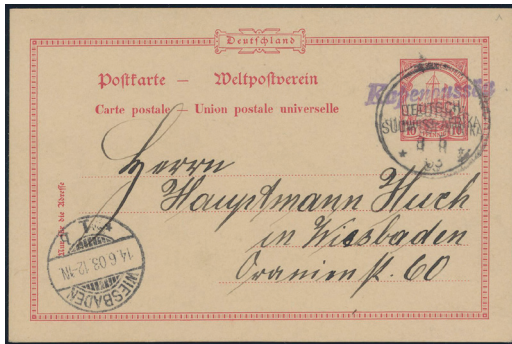 Deutschland
Postkarte — Weltpostverein
Carte postale — Union postale universelle
10 10
DEUTSCH-
SÜDWEST-AFRIKA
03
Herrn
Hauptmann Huch
in Wiesbaden
Oranienst. 60
WIESBADEN
14.6.03.12-1N.